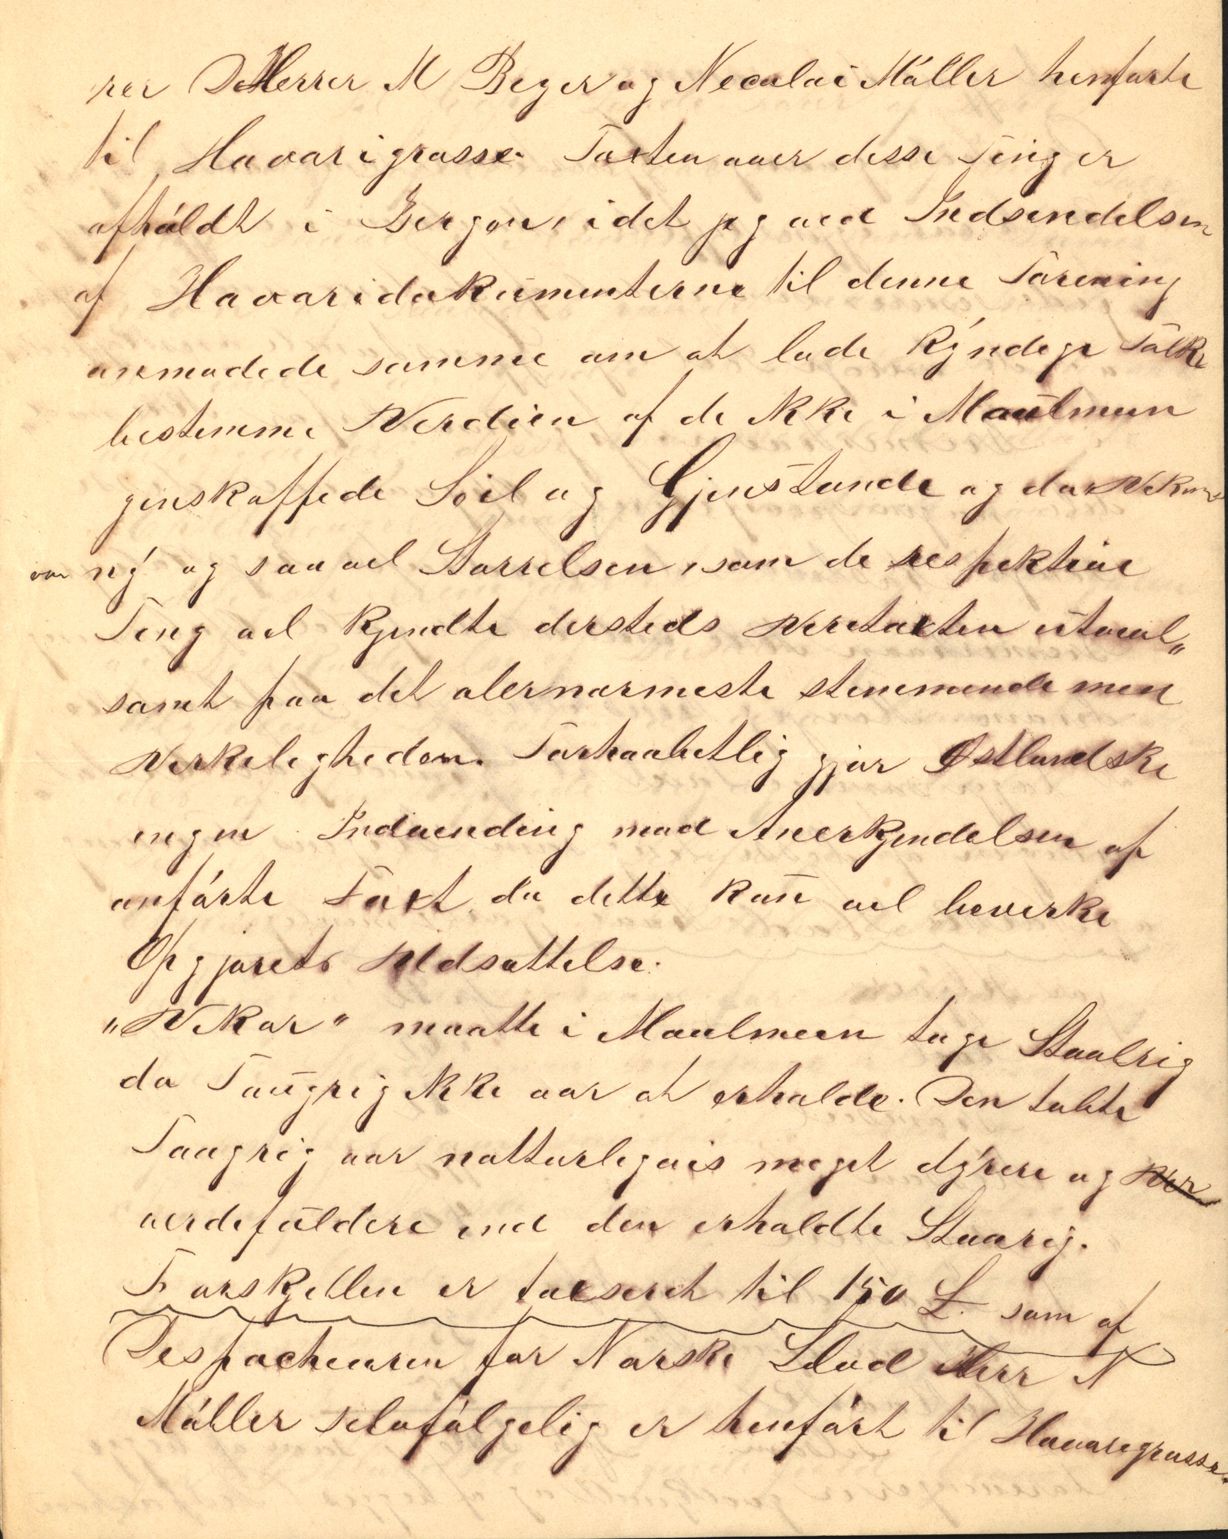 rer DHerrer M Beyer og Necolai Möller henförte
til Havarigrosse. Taxten over desse Ting er
afholdt i Bergen, idet jeg ved Indsendelsen
af Havaridokumenterne til denne Forening
anmodede samme om at lade kyndege Folke
bestemme Verdien af de Ikke i Maulmein
genskaffede Seil og Gjenstande og da Vikars
var ny og saavel Störrelsen, som de respektive
Ting vel kjendte dersteds Veretaxten utvil„
somt paa det alernærmeste stemmende men
Verkeligheden. Forhaabetlig gjör Østlandske
ingen Indvending mod Anerkjendelsen af
anförte Taxt, da dette kan vel beverke
Opgjørets Udsættelse.
"Vikar" maatte i Maulmein tage Staalrig
da Taugrig Ikke var at erholde. Den tabte
Taugrig var natturligvis meget dyrere og Ver
verdefuldere end den erholdte Staarig.
Forskjellen er taxseret til 150 £. som af
Despacheuren for Norske Llod Herr N
Möller selvfölgelig er henfört til Havaregrosse.